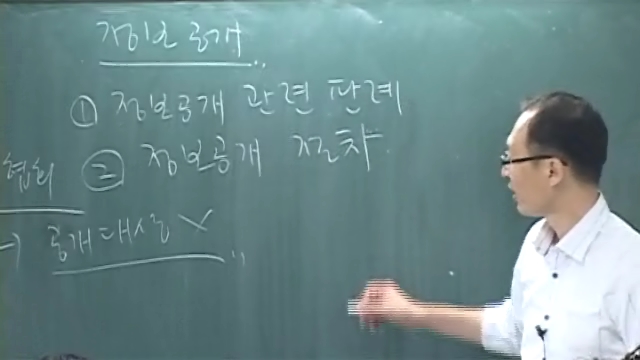 정보공개
① 정보공개 관련 판례
협회 ② 정보공개 절차
→ 공개대상 X